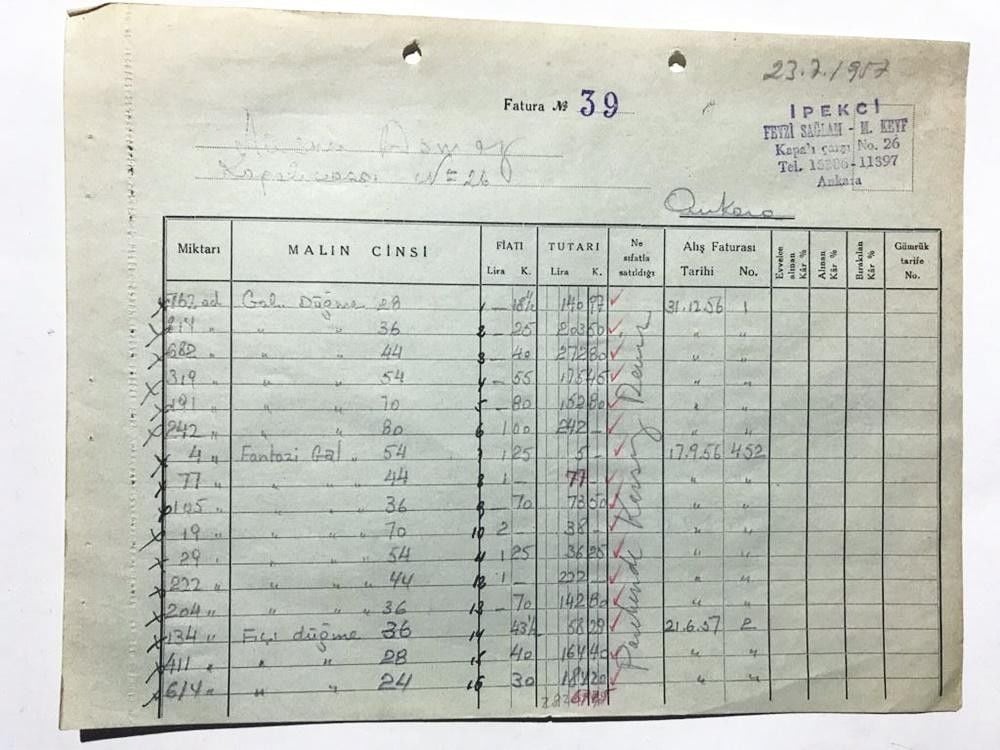 23.7.1957
Fatura № 39
İPEKCİ
FEVZİ SAĞLAM - M. KEYF
Kapalı çarşı No. 26
Tel. 15386-11397
Ankara
Kapalıçarşı No 26
Ankara
Miktarı MALIN CİNSİ FİATI Lira K. TUTARI Lira K. Ne sıfatla satıldığı Alış Faturası Tarihi No. Evvelce alınan Kâr % Alınan Kâr % Bırakılan Kâr % Gümrük tarife No.
762 ad Gal. Düğme 28 1 — 18½ 140 97 31.12.56 1
814 " " " 36 2 — 25 203 50 " "
682 " " " 44 3 — 40 272 80 " "
319 " " " 54 4 — 55 175 45 " "
191 " " " 70 5 — 80 152 80 " "
242 " " " 80 6 1 00 242 — " "
4 " Fantazi Gal " 54 7 1 25 5 — 17.9.56 452
77 " " " 44 8 1 — 77 — " "
105 " " " 36 9 — 70 73 50 " "
19 " " " 70 10 2 38 — " "
29 " " " 54 11 1 25 36 25 " "
222 " " " " 44 12 1 — 222 — " "
204 " " " " 36 13 — 70 142 80 " "
134 " düğme 36 14 43½ 58 29 21.6.57 2
411 " " " 28 15 40 164 40 " "
614 " " " 24 16 30 184 20 " "
Perakende